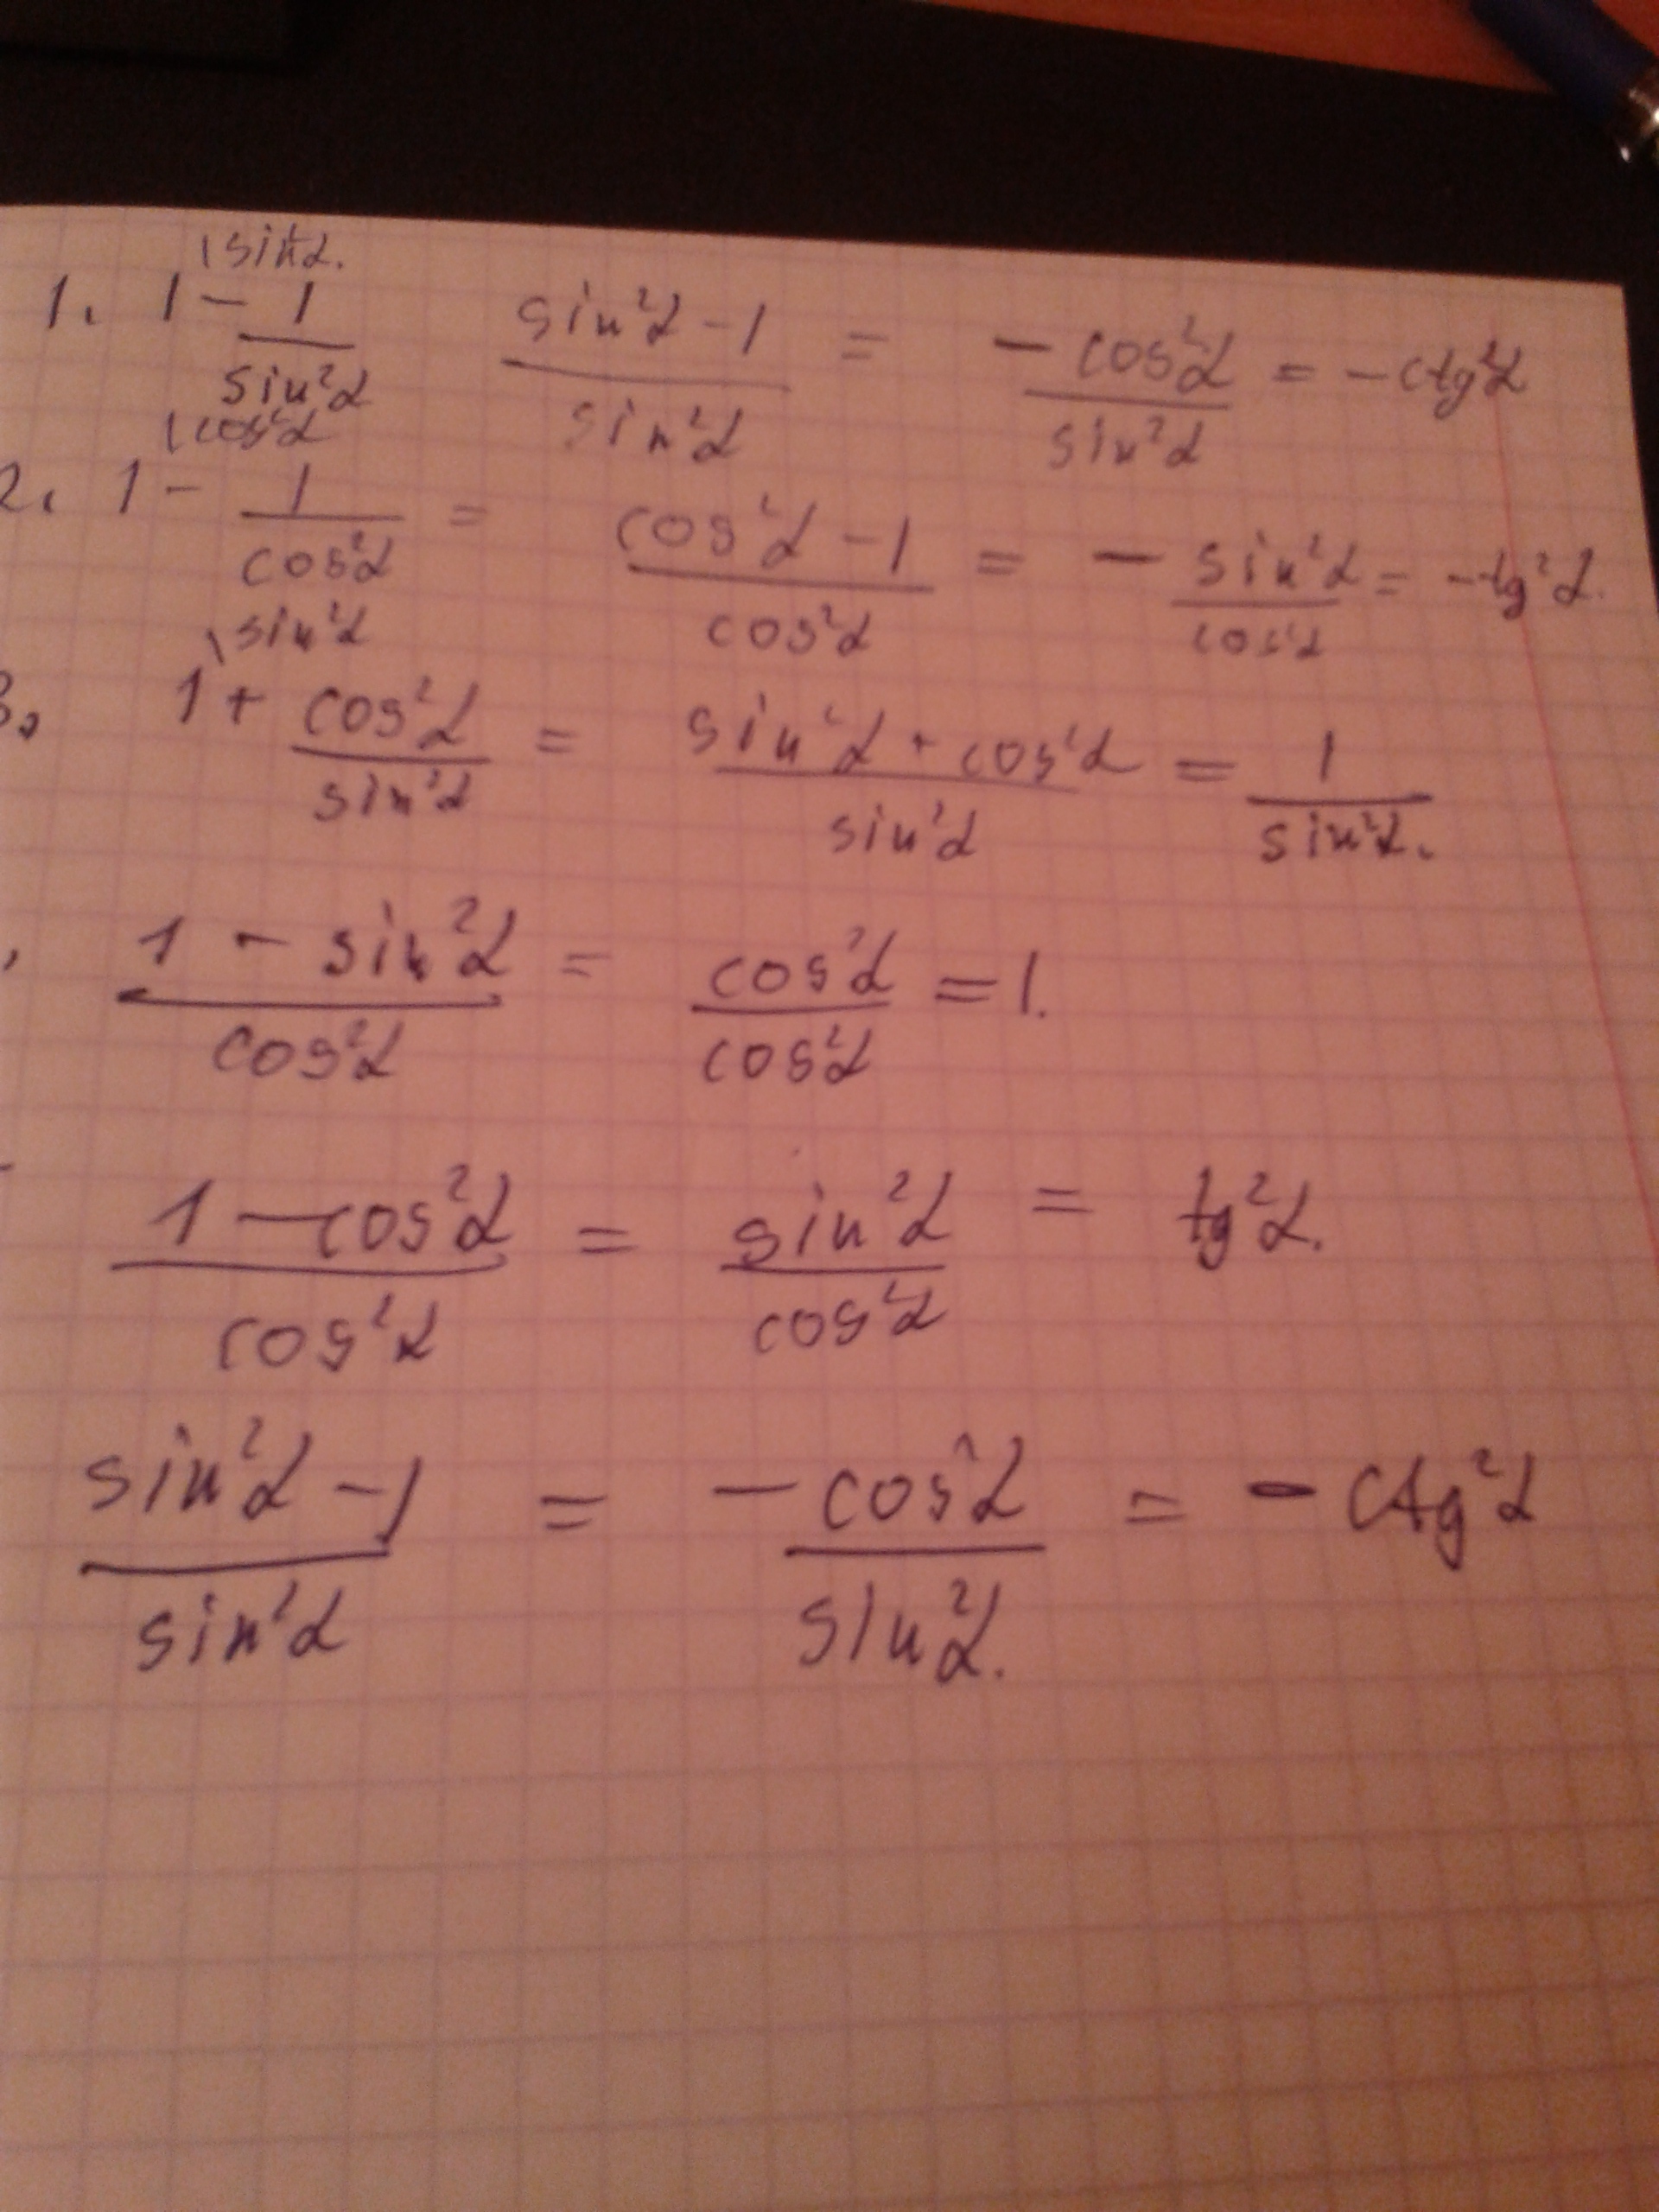 \sin²α.
1. 1 - 1/sin²α   (sin²α - 1)/sin²α = - cos²α/sin²α = - ctg²α
\cos²α
2. 1 - 1/cos²α = (cos²α - 1)/cos²α = - sin²α/cos²α = - tg²α.
\sin²α
3. 1 + cos²α/sin²α = (sin²α + cos²α)/sin²α = 1/sin²α.
(1 - sin²α)/cos²α = cos²α/cos²α = 1.
(1 - cos²α)/cos²α = sin²α/cos²α = tg²α.
(sin²α - 1)/sin²α = - cos²α/sin²α. = - ctg²α